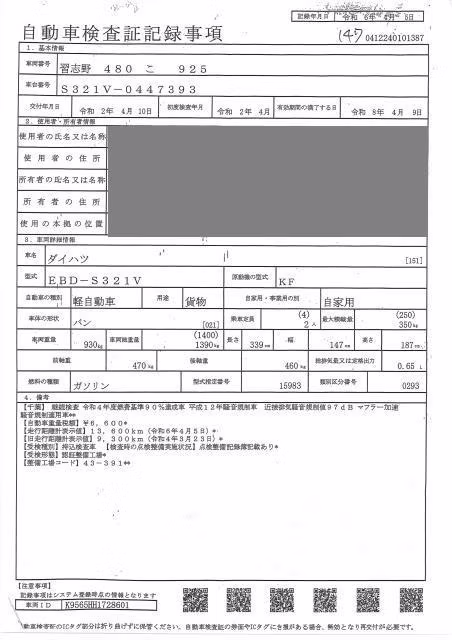 記録年月日 令和 6年 4月 5日
自動車検査証記録事項
147 0412240101387
1. 基本情報
車両番号 習志野 480 こ 925
車台番号 S321V-0447393
交付年月日 令和 2年 4月 10日 初度検査年月 令和 2年 4月 有効期間の満了する日 令和 8年 4月 9日
2. 使用者・所有者情報
使用者の氏名又は名称
使用者の住所
所有者の氏名又は名称
所有者の住所
使用の本拠の位置
3. 車両詳細情報
車名 ダイハツ [151]
型式 EBD-S321V 原動機の型式 KF
自動車の種別 軽自動車 用途 貨物 自家用・事業用の別 自家用
車体の形状 バン [021] 乗車定員 (4) 2人 最大積載量 (250) 350kg
車両重量 930kg 車両総重量 (1400) 1390kg 長さ 339cm 幅 147cm 高さ 187cm
前軸重 470kg 後軸重 460kg 総排気量又は定格出力 0.65 L
燃料の種類 ガソリン 型式指定番号 15983 類別区分番号 0293
4. 備考
【千葉】 継続検査 令和4年度燃費基準90%達成車 平成12年騒音規制車 近接排気騒音規制値97dB マフラー加速
騒音規制適用車**
【自動車重量税額】¥6,600*
【走行距離計表示値】13,600km (令和6年4月5日)*
【旧走行距離計表示値】9,300km (令和4年3月23日)*
【受検種別】持込検査車 【検査時の点検整備実施状況】点検整備記録簿記載あり*
【受検形態】認証整備工場*
【整備工場コード】43-391**
【注意事項】
記録事項はシステム登録時点の情報となります
車両ID K9565HH1728601
自動車検査証のICタグ部分は折り曲げずに保管ください。自動車検査証の券面やICタグに支障がある場合、無効となり再交付が必要です。